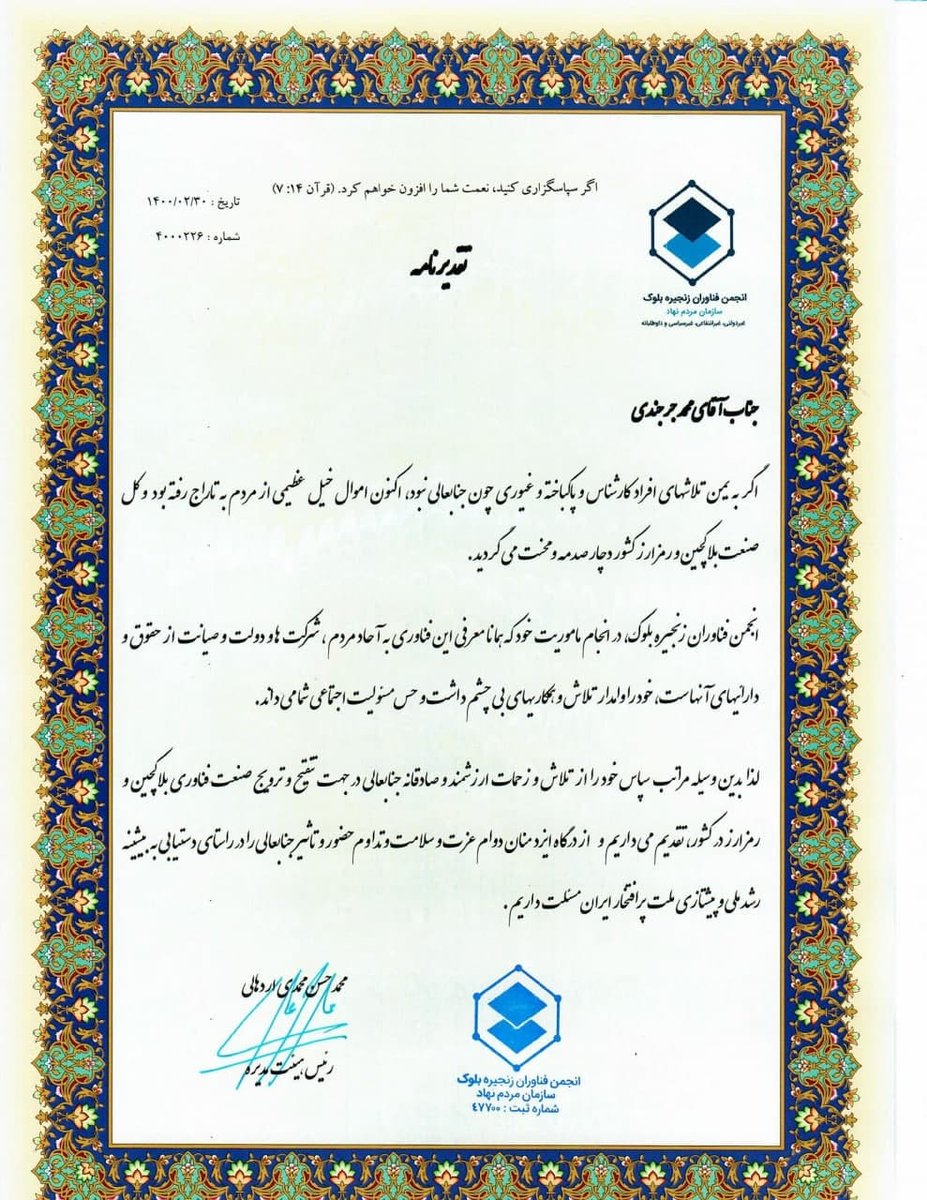 اگر سپاسگزاری کنید، نعمت شما را افزون خواهم کرد. (قرآن ۱۴: ۷)
تاریخ : ۱۴۰۰/۰۲/۳۰
شماره : ۴۰۰۰۲۲۶
تقدیرنامه
انجمن فناوران زنجیره بلوک
سازمان مردم نهاد
غیردولتی، غیرانتفاعی، غیرسیاسی و داوطلبانه
جناب آقای محمد جرجندی
اگر به یمن تلاشهای افراد کارشناس و پاکباخته و غیوری چون جنابعالی نبود، اکنون اموال خیل عظیمی از مردم به تاراج رفته بود و کل
صنعت بلاکچین و رمزارز کشور دچار صدمه و محنت می گردید.
انجمن فناوران زنجیره بلوک، در انجام ماموریت خود که همانا معرفی این فناوری به آحاد مردم ، شرکت ها و دولت و صیانت از حقوق و
دارائیهای آنهاست، خود را وامدار تلاش و همکاریهای بی چشم داشت و حس مسئولیت اجتماعی شما می داند.
لذا بدین وسیله مراتب سپاس خود را از تلاش و زحمات ارزشمند و صادقانه جنابعالی در جهت تنقیح و ترویج صنعت فناوری بلاکچین و
رمزارز در کشور، تقدیم می داریم و از درگاه ایزد منان دوام عزت و سلامت و تداوم حضور و تاثیر جنابعالی را در راستای دستیابی به بیشینه
رشد ملی و پیشتازی ملت پرافتخار ایران مسئلت داریم .
محمد حسن محمدی اردهالی
رئیس هیئت مدیره
انجمن فناوران زنجیره بلوک
سازمان مردم نهاد
شماره ثبت : ٤٧٧٠٠